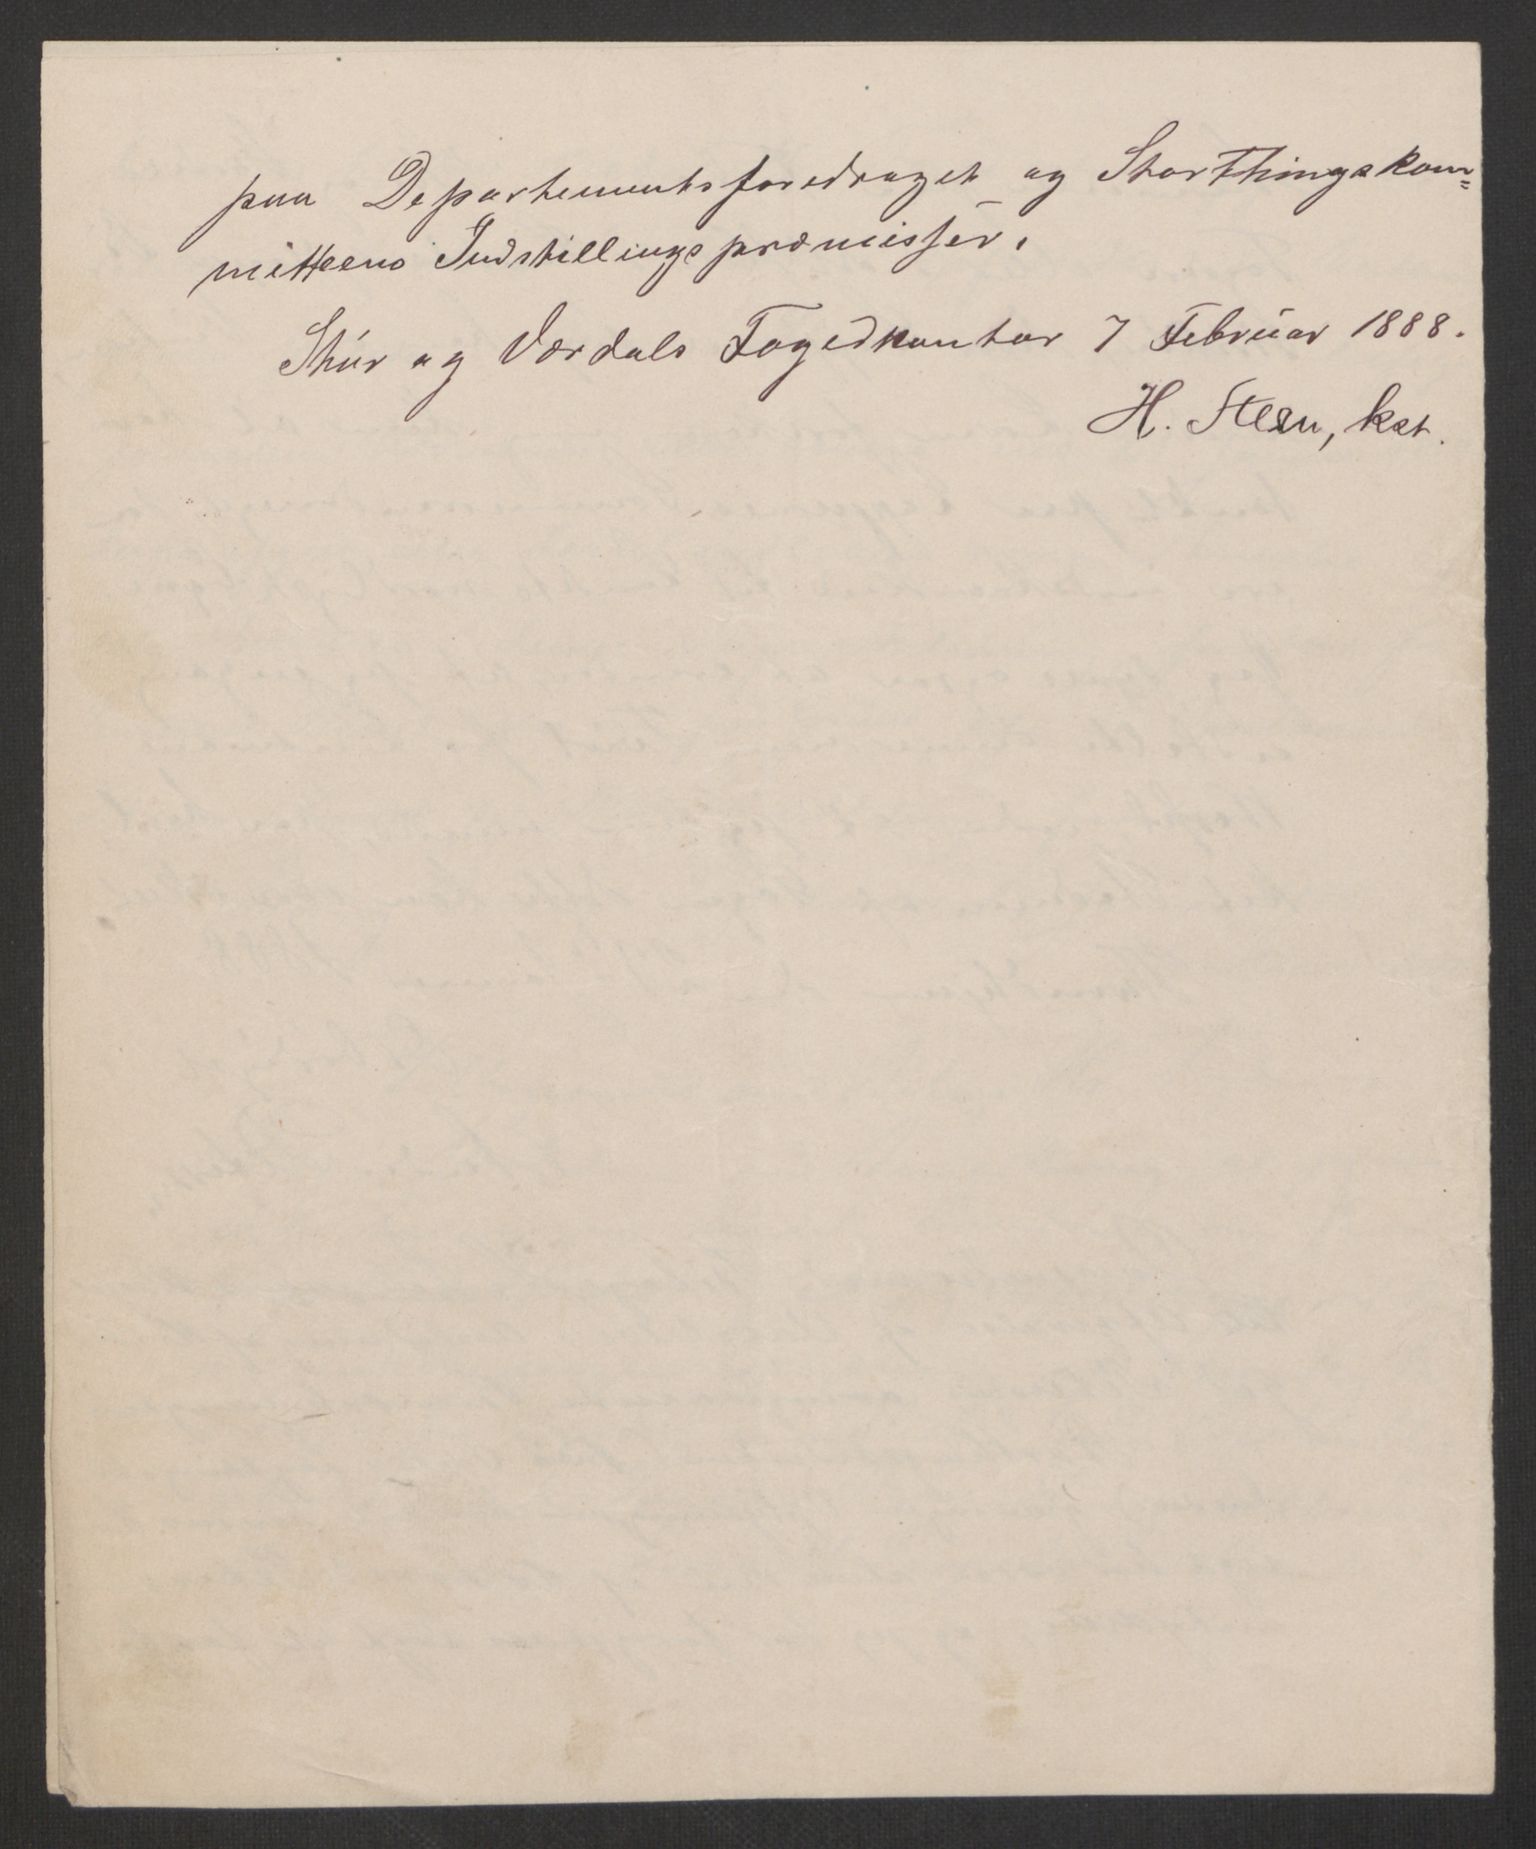 paa Departementsforedraget og Storthingskom=
mitteens Indstillings præmisser.
Stjør og Værdals Fogedkontor 7 Februar 1888.
H. Steen, kst.